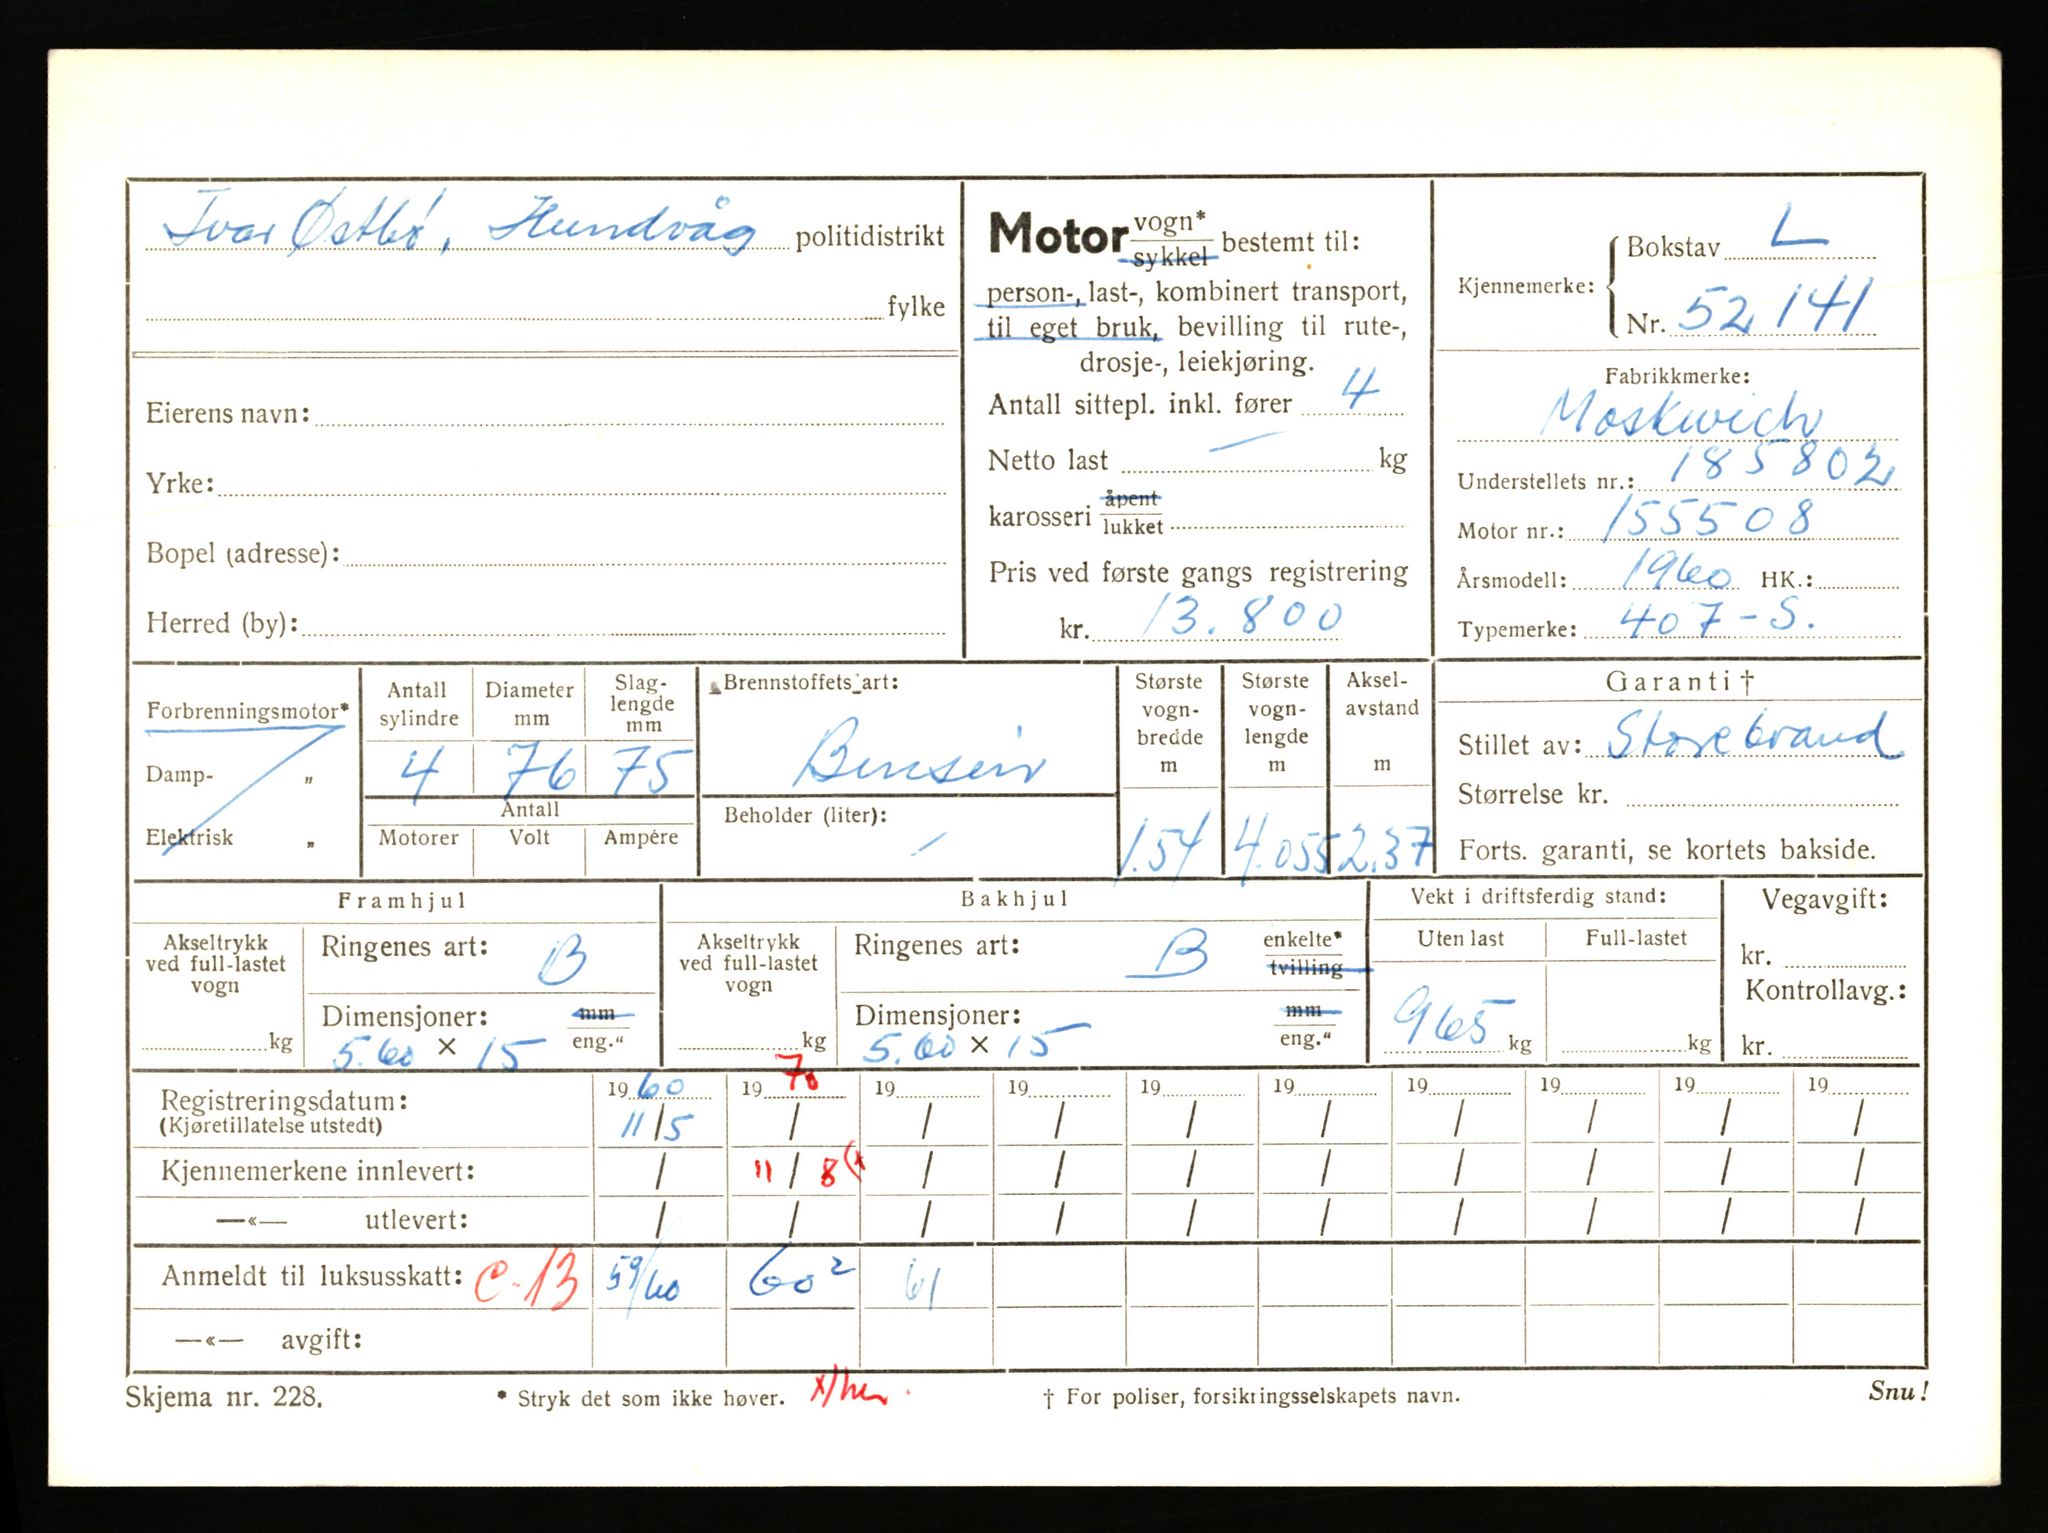 Ivar Østbø, Hundvåg politidistrikt
fylke
Eierens navn:
Yrke:
Bopel (adresse):
Herred (by):
Motor vogn* sykkel bestemt til:
person-, last-, kombinert transport,
til eget bruk, bevilling til rute-,
drosje-, leiekjøring.
Antall sittepl. inkl. fører 4
Netto last — kg
karosseri åpent lukket
Pris ved første gangs registrering
kr. 13.800
Kjennemerke: Bokstav L
Nr. 52141
Fabrikkmerke:
Moskwich
Understellets nr.: 185802
Motor nr.: 155508
Årsmodell: 1960 HK.:
Typemerke: 407-S.
Forbrenningsmotor*
Damp- „
Elektrisk „
Antall sylindre 4
Diameter mm 76
Slag-lengde mm 75
Antall
Motorer Volt Ampére
Brennstoffets art:
Bensin
Beholder (liter): /
Største vogn-bredde m 1.54
Største vogn-lengde m 4.055
Aksel-avstand m 2.37
Garanti †
Stillet av: Storebrand
Størrelse kr.
Forts. garanti, se kortets bakside.
Framhjul
Akseltrykk ved full-lastet vogn
kg
Ringenes art: B
Dimensjoner: mm eng."
5.60 × 15
Bakhjul
Akseltrykk ved full-lastet vogn
kg
Ringenes art: B enkelte* tvilling
Dimensjoner: mm eng."
5.60 × 15
Vekt i driftsferdig stand:
Uten last Full-lastet
965 kg kg
Vegavgift:
kr.
Kontrollavg.:
kr.
1960 1970 19 19 19 19 19 19 19 19
Registreringsdatum: 11/5 / / / / / / / / /
(Kjøretillatelse utstedt)
Kjennemerkene innlevert: / 11/8 (x / / / / / / / /
—«— utlevert: / / / / / / / / / /
Anmeldt til luksusskatt: C-13 59/60 60² 61
—«— avgift:
Skjema nr. 228. * Stryk det som ikke høver. † For poliser, forsikringsselskapets navn. Snu!